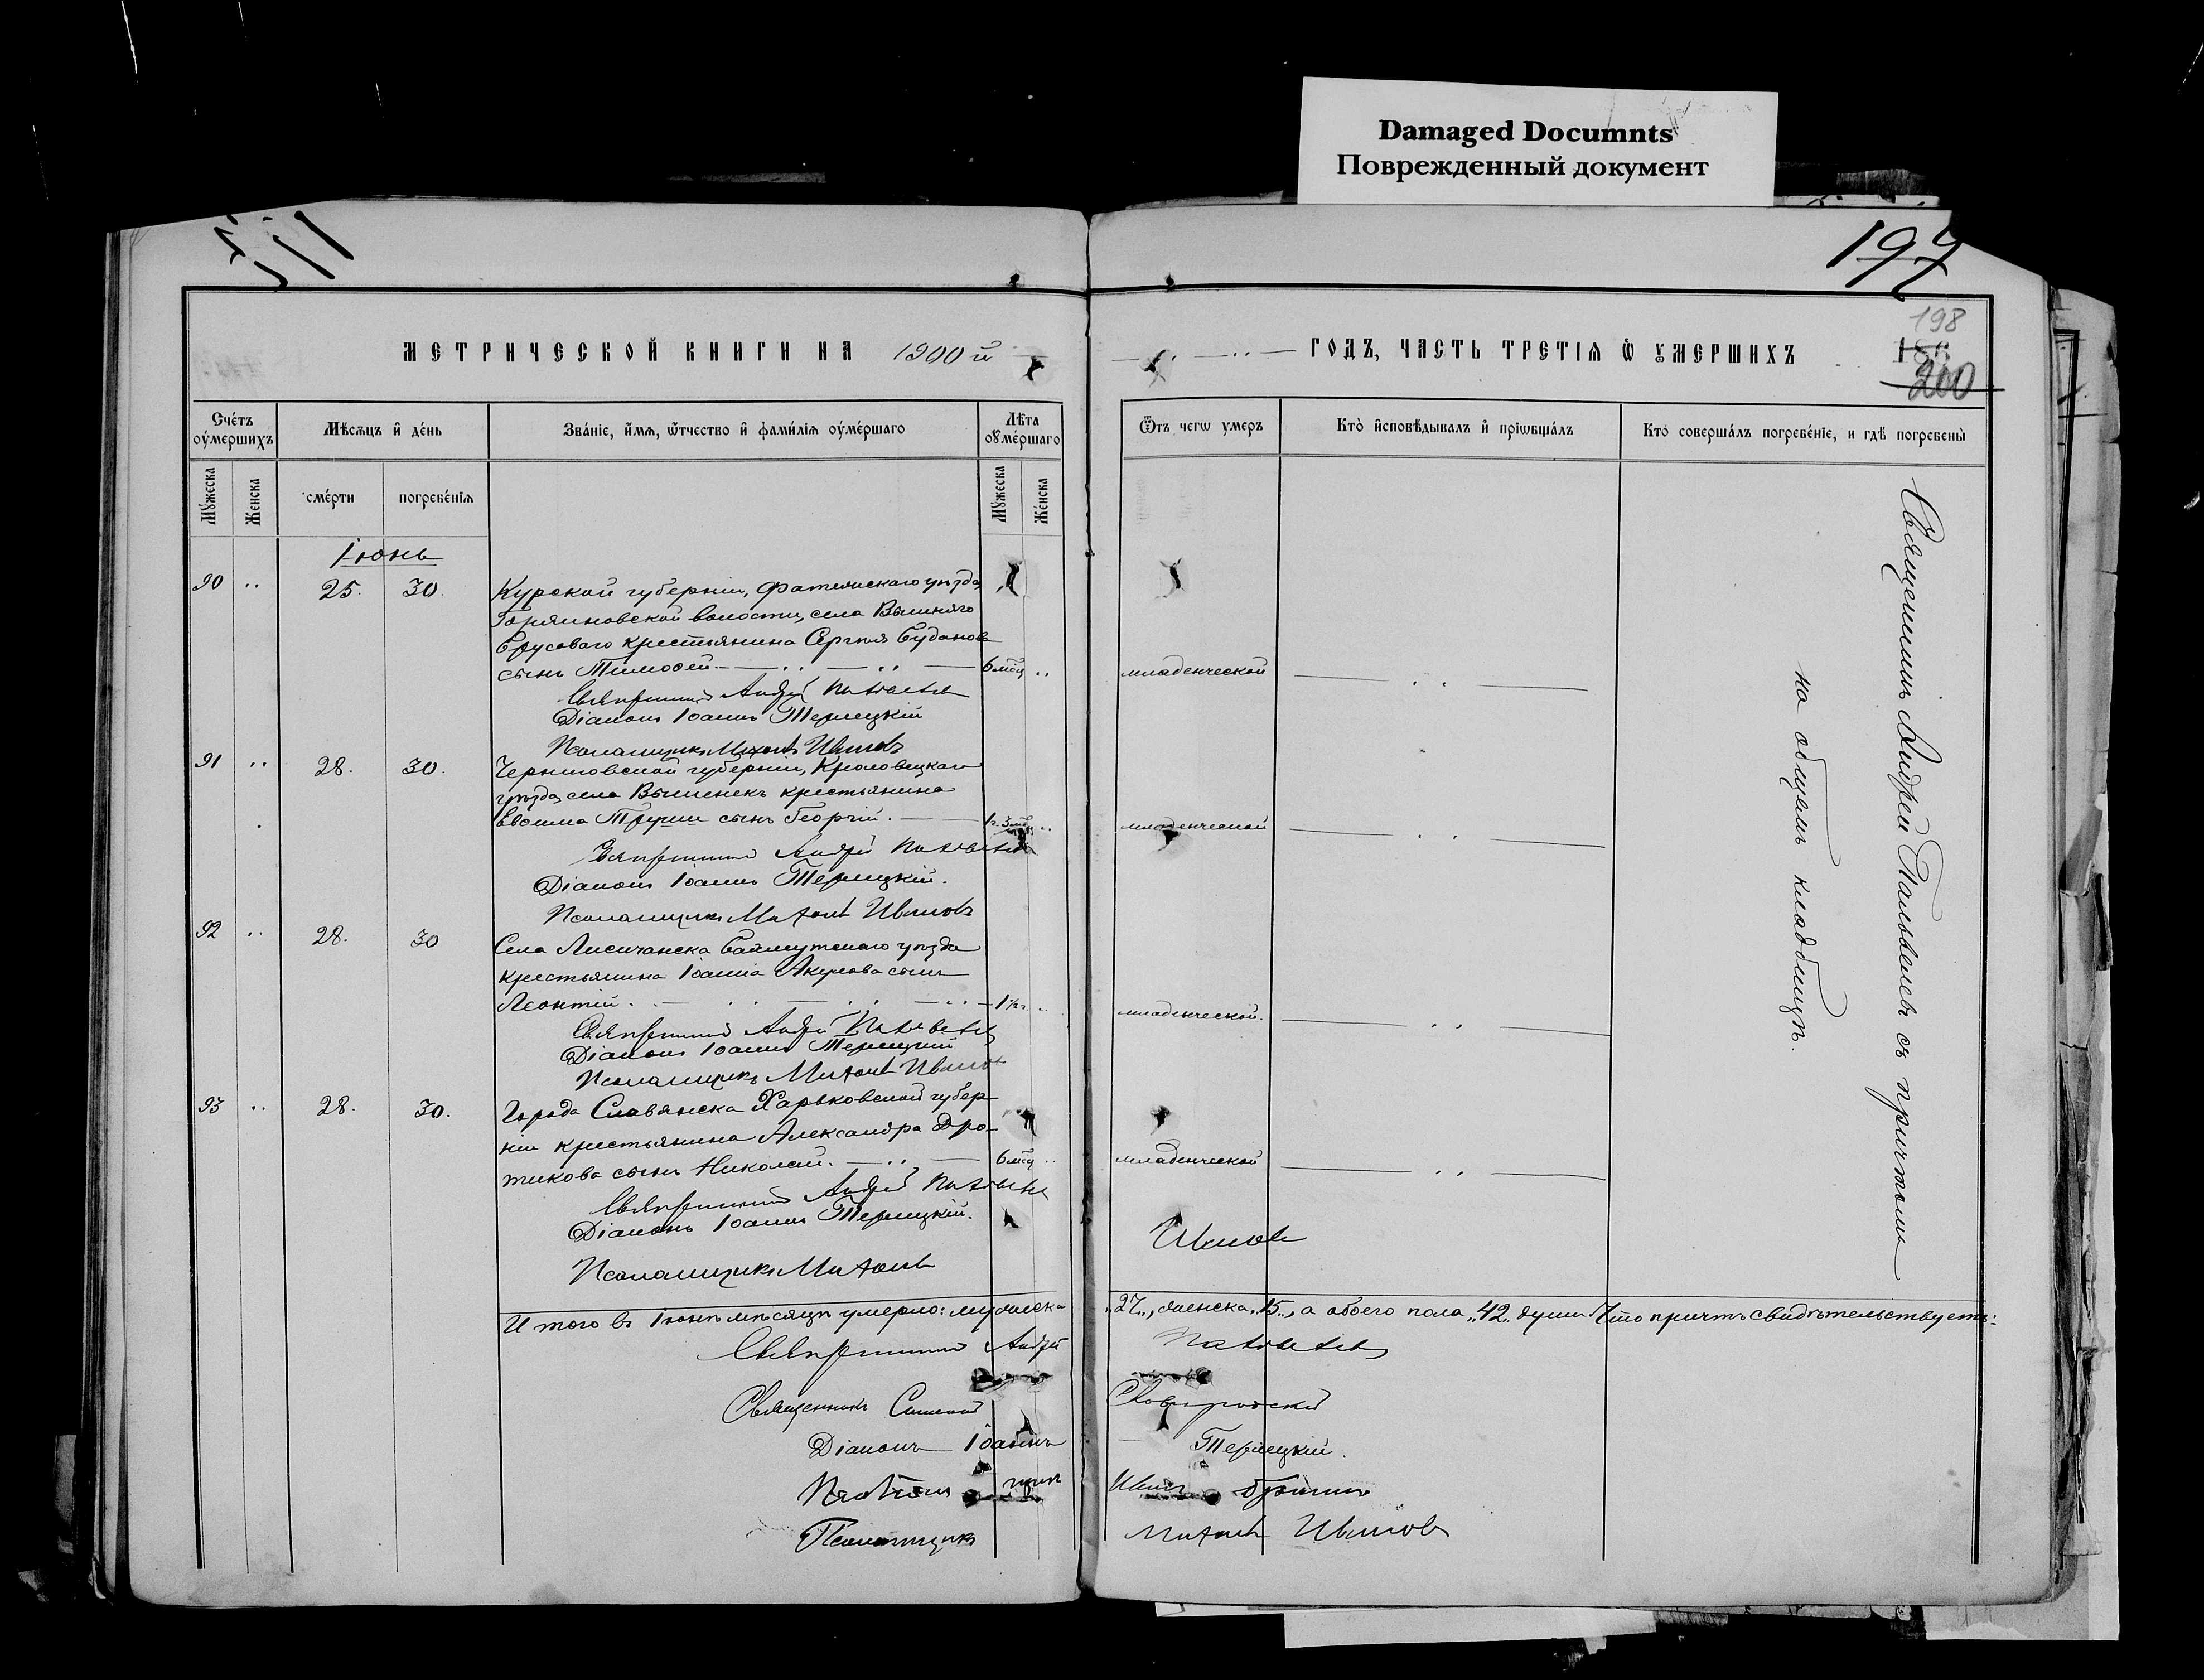 Damaged Documnts
Поврежденный документ
197
198
200
МЕТРИЧЕСКОЙ КНИГИ НА 1900 й
ГОДЪ, ЧАСТЬ ТРЕТІЯ Ѡ УМЕРШИХЪ
Счетъ оумершихъ
Мѣсяцъ и день
Званіе, имя, отчество и фамилія оумершаго
Лѣта оумершаго
Отъ чегѡ умеръ
Кто исповѣдывалъ и пріѡбщалъ
Кто совершалъ погребеніе, и гдѣ погребены
Мужеска
Женска
смерти
погребенія
Мужеска
Женска
Іюнь
90 .. 25. 30. Курской губерніи, Фатежскаго уѣзда,
волости, села Вышняго
Брусоваго крестьянина Сергія Буданова
сынъ Тимофей 6 мѣс .. младенческой
Священникъ Андрей
Діаконъ Іоаннъ Терлецкій
Псаломщикъ Михаилъ Ивановъ
91 .. 28. 30. Черниговской губерніи, Кролевецкаго
уѣзда, села Вишенекъ крестьянина
сынъ Георгій. .. младенческой
Священникъ Андрей
Діаконъ Іоаннъ Терлецкій.
Псаломщикъ Михаилъ Ивановъ
92 .. 28. 30 Села Лисичанска Бахмутскаго уѣзда
крестьянина Іоанна Акулова сынъ
Леонтій. 1½ г. .. младенческой.
Священникъ Андрей
Діаконъ Іоаннъ Терлецкій
Псаломщикъ Михаилъ Ивановъ
93 .. 28. 30. Города Славянска Харьковской губер-
ніи крестьянина Александра Дро-
тикова сынъ Николай. 6 мѣс .. младенческой
Священникъ Андрей
Діаконъ Іоаннъ Терлецкій.
Псаломщикъ Михаилъ Ивановъ
Священникъ Андрей съ причтомъ
на общемъ кладбищѣ.
Итого въ Іюнѣ мѣсяцѣ умерло: мужеска „27„, женска „15„, а обоего пола „42„ души. Что причтъ свидѣтельствуетъ:
Священникъ Андрей
Священникъ
Діаконъ Іоаннъ Терлецкій.
Псаломщикъ Михаилъ Ивановъ